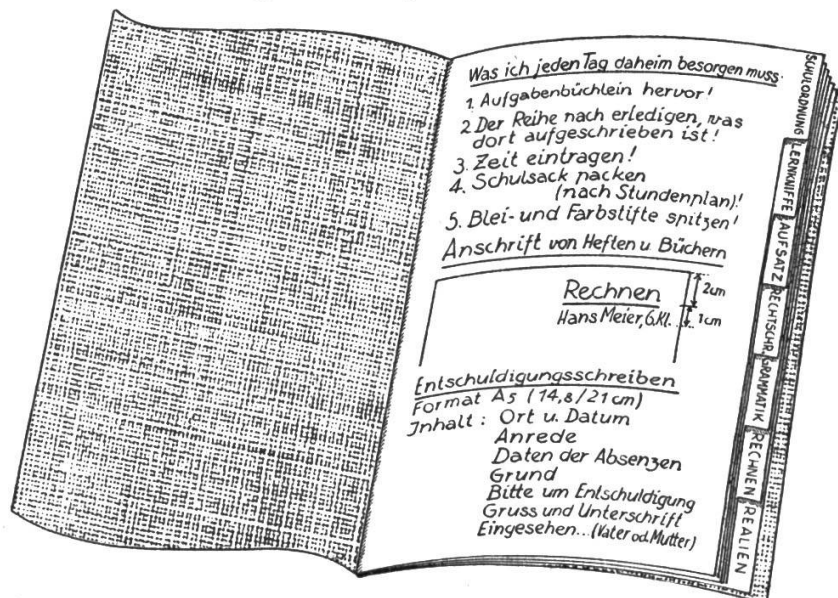 Was ich jeden Tag daheim besorgen muss
1. Aufgabenbüchlein hervor!
2. Der Reihe nach erledigen, was
dort aufgeschrieben ist!
3. Zeit eintragen!
4. Schulsack packen
(nach Stundenplan)!
5. Blei- und Farbstifte spitzen!
Anschrift von Heften u. Büchern
Rechnen
Hans Meier, 6.Kl.
2cm
1cm
Entschuldigungsschreiben
Format A5 (14,8/21 cm)
Inhalt: Ort u. Datum
Anrede
Daten der Absenzen
Grund
Bitte um Entschuldigung
Gruss und Unterschrift
Eingesehen...(Vater od. Mutter)
SCHULORDNUNG
LERNKNIFFE
AUFSATZ
RECHTSCHR.
GRAMMATIK
RECHNEN
REALIEN